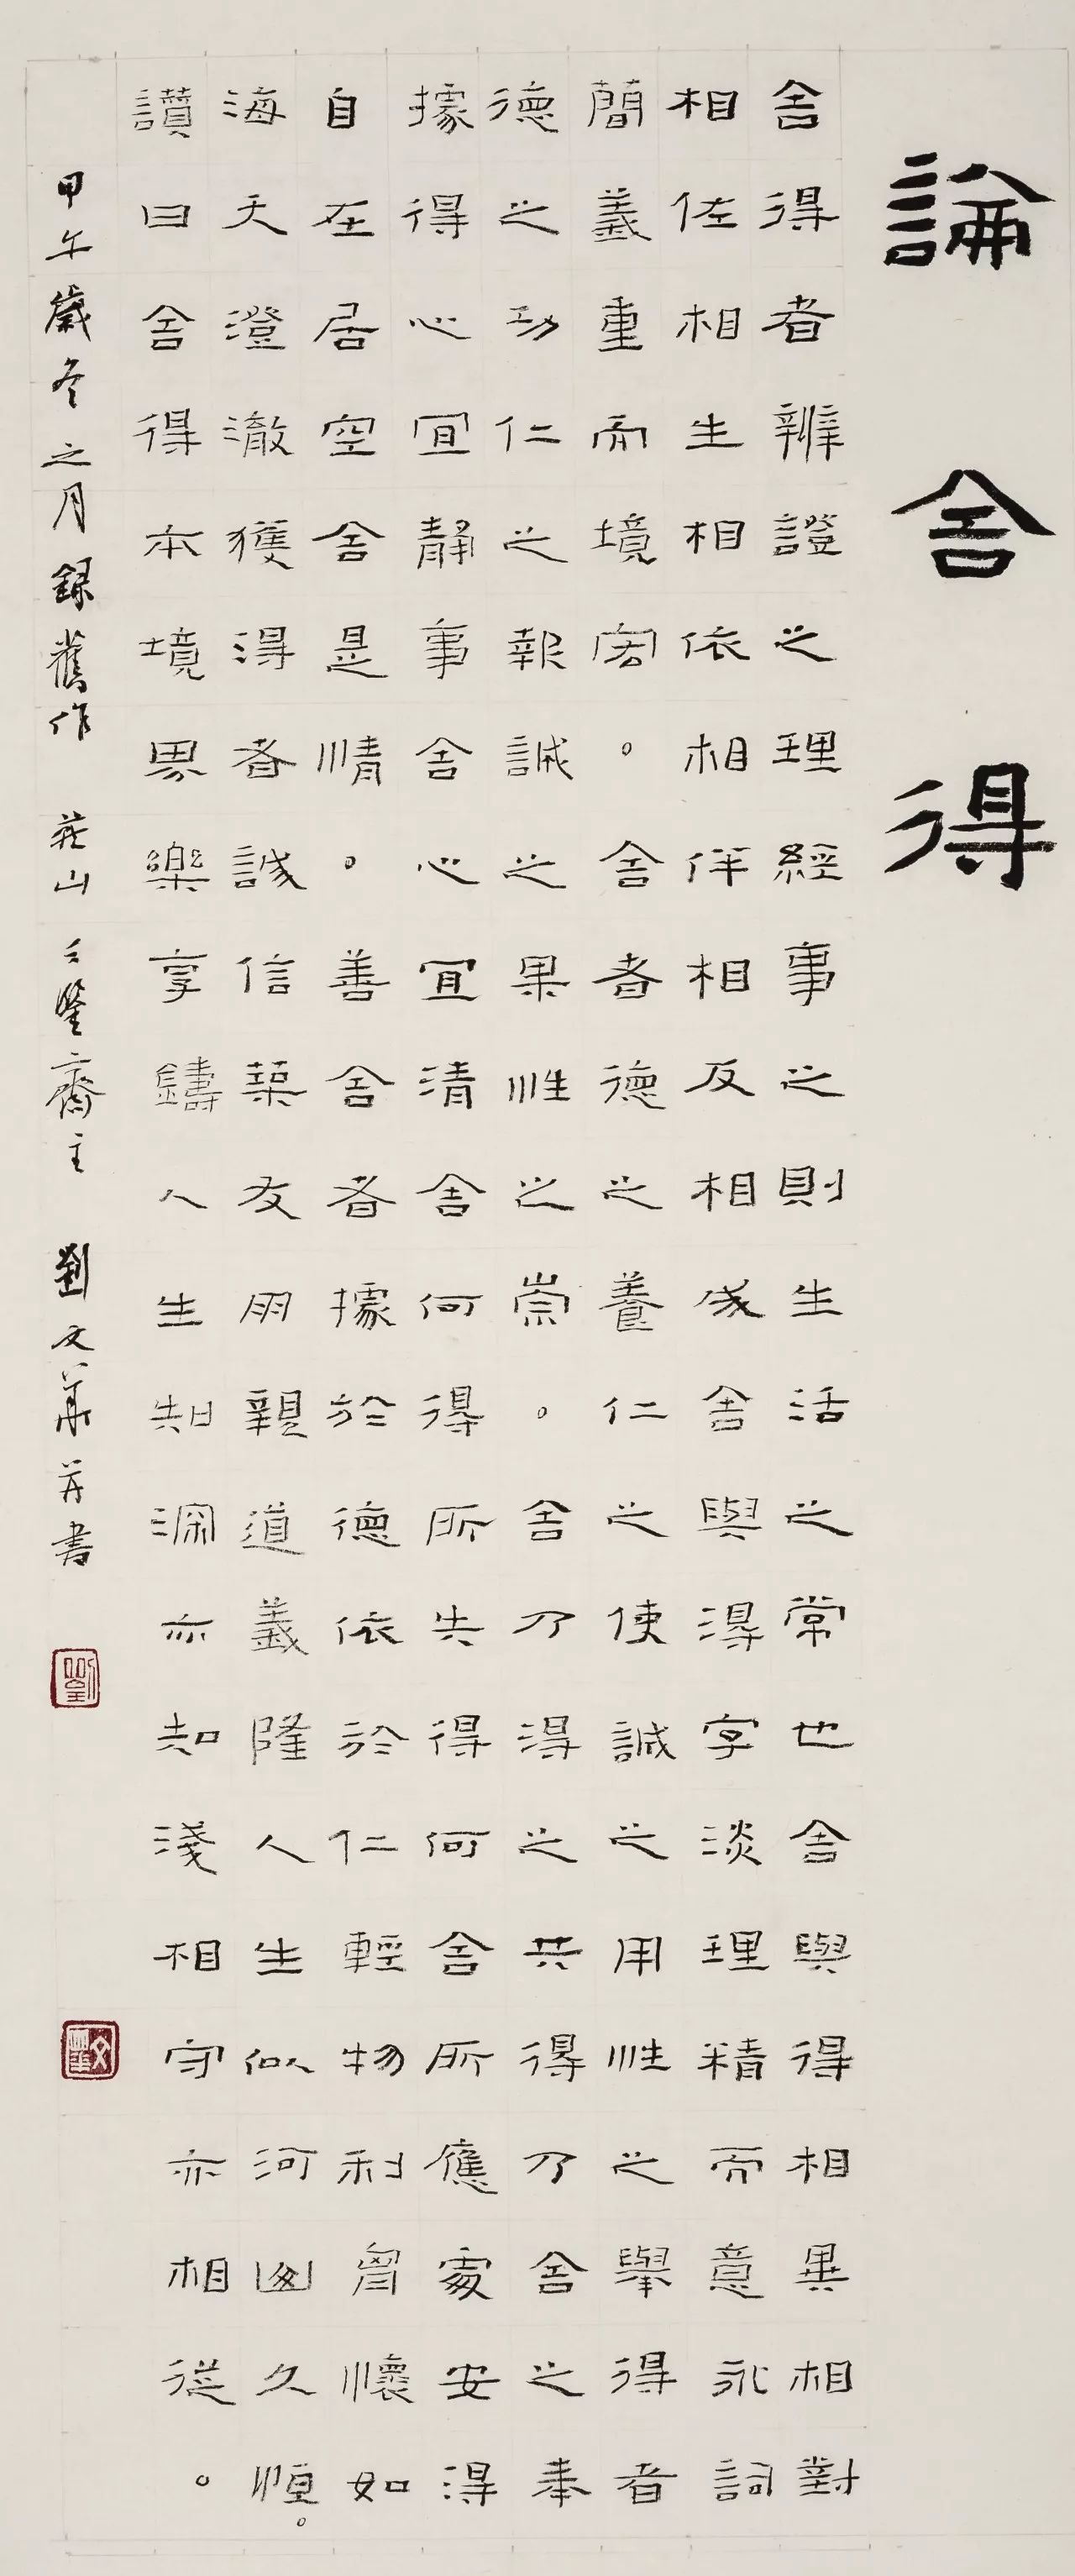 論舍得
舍得者辨證之理經事之則生活之常也舍與得相異相對
相佐相生相依相伴相反相成舍與得字淡理精而意永詞
簡義重而境宏。舍者德之養仁之使誠之用性之舉得者
德之功仁之報誠之果性之崇。舍乃得之共得乃舍之奉
據得心宜靜事舍心宜清舍何得所失得何舍所應處安得
自在居空舍是情。善舍者據於德依於仁輕物利胸懷如
海天澄澈獲得者誠信築友朋親道義隆人生似河幽久恆。
讚曰舍得本境界樂享鑄人生知深亦知淺相守亦相從。
甲午歲冬之月錄舊作 莊山 齋主 劉文華并書
劉
文華